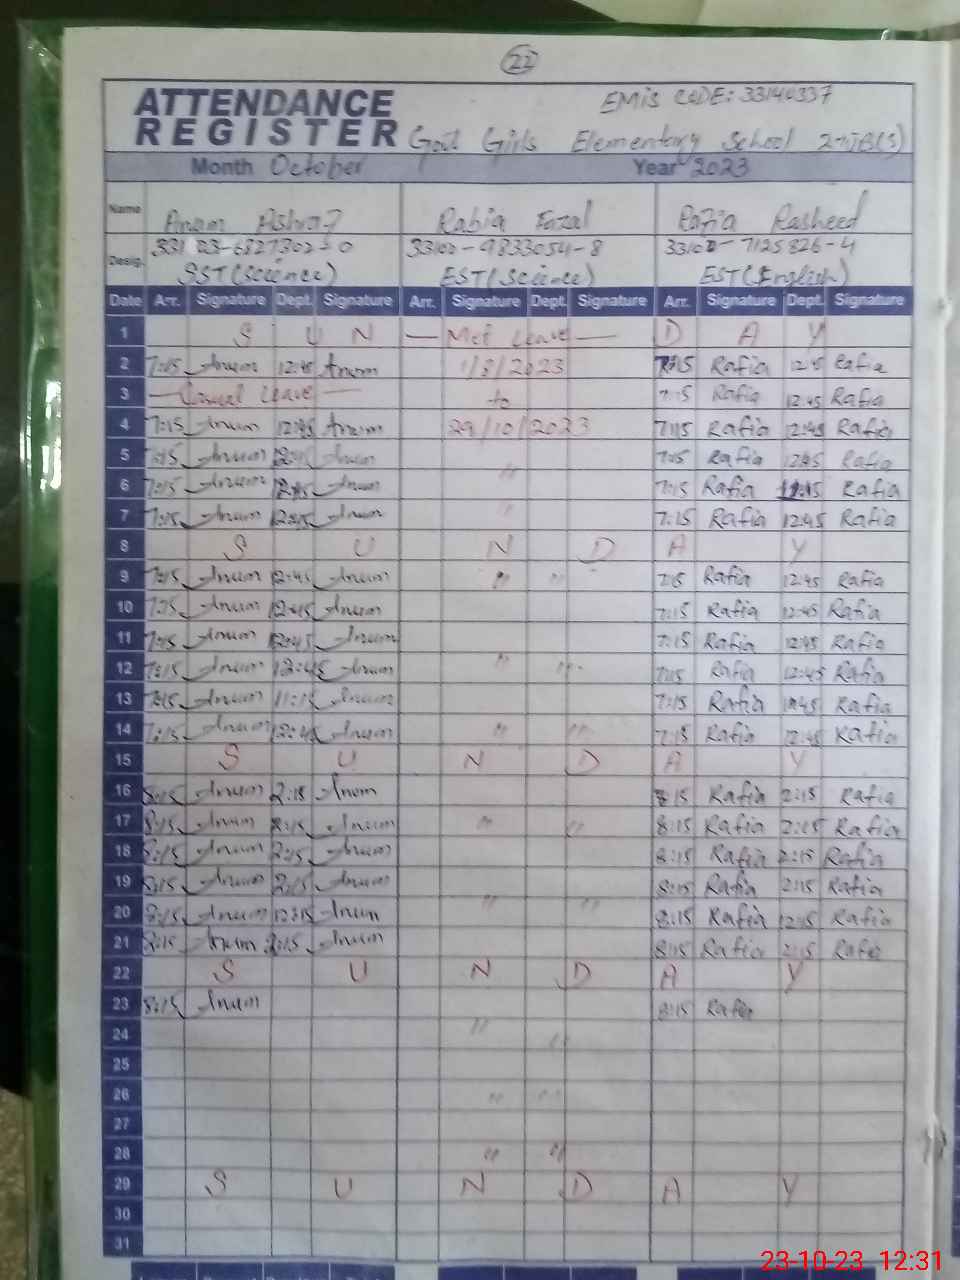 22
ATTENDANCE EMIS CODE: 33140337
REGISTER Govt Girls Elementary School
Month October Year 2023
Name Anam Ashraf Rabia Fazal Rafia Rasheed
33100-9833054-8 33100-7125826-4
Desig. SST(Science) EST(Science) EST(English)
Date Arr. Signature Dept. Signature Arr. Signature Dept. Signature Arr. Signature Dept. Signature
1 S U N — Met Leave — D A Y
2 7:15 Anum 12:45 Anum 1/8/2023 7:15 Rafia 12:45 Rafia
3 — Casual Leave — to 7:15 Rafia 12:45 Rafia
4 7:15 Anum 12:45 Anum 29/10/2023 7:15 Rafia 12:45 Rafia
5 7:15 Anum 12:45 Anum 7:15 Rafia 12:45 Rafia
6 7:15 Anum 12:45 Anum " 7:15 Rafia Rafia
7 7:15 Anum 12:45 Anum " 7:15 Rafia 12:45 Rafia
8 S U N D A Y
9 7:15 Anum 12:45 Anum " " 7:15 Rafia 12:45 Rafia
10 7:15 Anum 12:45 Anum 7:15 Rafia 12:45 Rafia
11 7:15 Anum 12:45 Anum 7:15 Rafia 12:45 Rafia
12 7:15 Anum 12:45 Anum " " 7:15 Rafia 12:45 Rafia
13 7:15 Anum 11:15 Anum 7:15 Rafia Rafia
14 7:15 Anum 12:45 Anum " " 7:15 Rafia 12:45 Rafia
15 S U N D A Y
16 8:15 Anum 2:15 Anum 8:15 Rafia 2:15 Rafia
17 8:15 Anum 2:15 Anum " " 8:15 Rafia 2:15 Rafia
18 8:15 Anum 2:15 Anum 8:15 Rafia 2:15 Rafia
19 8:15 Anum 2:15 Anum 8:15 Rafia 2:15 Rafia
20 8:15 Anum 12:15 Anum " " 8:15 Rafia 12:15 Rafia
21 8:15 Anum 2:15 Anum 8:15 Rafia 2:15 Rafia
22 S U N D A Y
23 8:15 Anum 8:15 Rafia
24 " "
25
26 " "
27
28 " "
29 S U N D A Y
30
31
23-10-23 12:31